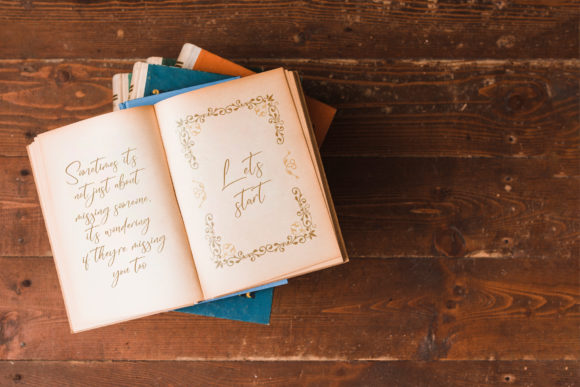 Sometimes it's
not just about
missing someone,
it's wondering
if they're missing
you too
Let's
start